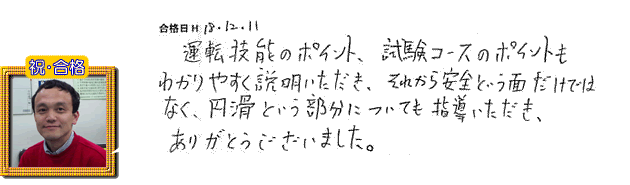 合格日 H 18.12.11
運転技能のポイント、試験コースのポイントも
わかりやすく説明いただき、それから安全という面だけでは
なく、円滑という部分についても指導いただき、
ありがとうございました。
祝・合格